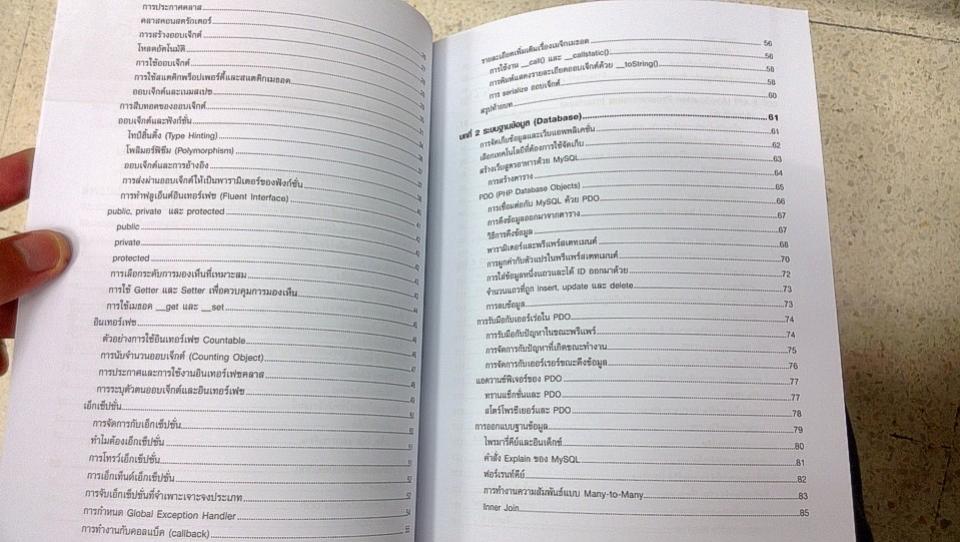 การประกาศคลาส
คลาสคอนสตรักเตอร์
การสร้างออบเจ็กต์
โหลดอัตโนมัติ
การใช้ออบเจ็กต์
การใช้สแตติกพร็อปเพอร์ตี้และสแตติกเมธอด
ออบเจ็กต์และเนมสเปซ
การสืบทอดของออบเจ็กต์
ออบเจ็กต์และฟังก์ชั่น
ไทป์ฮินติ้ง (Type Hinting)
โพลิมอร์ฟิซึม (Polymorphism)
ออบเจ็กต์และการอ้างอิง
การส่งผ่านออบเจ็กต์ให้เป็นพารามิเตอร์ของฟังก์ชั่น
การทำฟลูเอ็นต์อินเทอร์เฟซ (Fluent Interface)
public, private และ protected
public
private
protected
การเลือกระดับการมองเห็นที่เหมาะสม
การใช้ Getter และ Setter เพื่อควบคุมการมองเห็น
การใช้เมธอด __get และ __set
อินเทอร์เฟซ
ตัวอย่างการใช้อินเทอร์เฟซ Countable
การนับจำนวนออบเจ็กต์ (Counting Object)
การประกาศและการใช้งานอินเทอร์เฟซคลาส
การระบุตัวตนออบเจ็กต์และอินเทอร์เฟซ
เอ็กเซ็ปชั่น
การจัดการกับเอ็กเซ็ปชั่น
ทำไมต้องเอ็กเซ็ปชั่น
การโทรว์เอ็กเซ็ปชั่น
การเอ็กเท็นด์เอ็กเซ็ปชั่น
การจับเอ็กเซ็ปชั่นที่จำเพาะเจาะจงประเภท
การกำหนด Global Exception Handler
การทำงานกับคอลแบ็ค (callback) 55
รายละเอียดเพิ่มเติมเรื่องเมจิกเมธอด 56
การใช้งาน __call() และ __callstatic() 56
การพิมพ์แสดงรายละเอียดออบเจ็กต์ด้วย __toString() 58
การ serialize ออบเจ็กต์ 58
สรุปท้ายบท 60
บทที่ 2 ระบบฐานข้อมูล (Database) 61
การจัดเก็บข้อมูลและเว็บแอพพลิเคชั่น 61
เลือกเทคโนโลยีที่ต้องการใช้จัดเก็บ 62
สร้างเว็บสูตรอาหารด้วย MySQL 63
การสร้างตาราง 64
PDO (PHP Database Objects) 65
การเชื่อมต่อกับ MySQL ด้วย PDO 66
การดึงข้อมูลออกมาจากตาราง 67
วิธีการดึงข้อมูล 67
พารามิเตอร์และพรีแพร์สเตทเมนต์ 68
การผูกค่ากับตัวแปรในพรีแพร์สเตทเมนต์ 70
การใส่ข้อมูลหนึ่งแถวและได้ ID ออกมาด้วย 72
จำนวนแถวที่ถูก insert, update และ delete 73
การลบข้อมูล 73
การรับมือกับเออร์เร่อใน PDO 74
การรับมือกับปัญหาในขณะพรีแพร์ 74
การจัดการกับปัญหาที่เกิดขณะทำงาน 75
การจัดการกับเออร์เรอร์ขณะดึงข้อมูล 76
แอดวานซ์ฟีเจอร์ของ PDO 77
ทรานแซ็กชั่นและ PDO 77
สโตร์โพรซีเยอร์และ PDO 78
การออกแบบฐานข้อมูล 79
ไพรมารี่คีย์และอินเด็กซ์ 80
คำสั่ง Explain ของ MySQL 81
ฟอร์เรนท์คีย์ 82
การทำงานความสัมพันธ์แบบ Many-to-Many 83
Inner Join 85